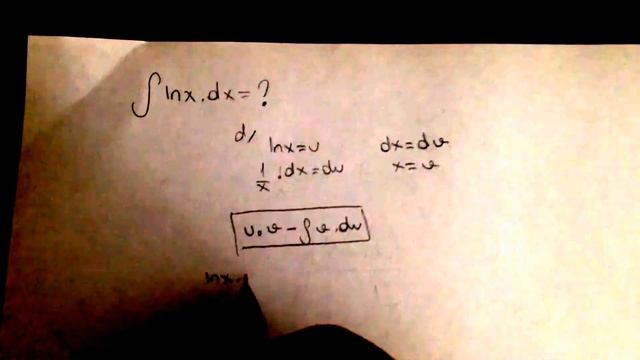 ∫ lnx . dx = ?
d/
lnx = u    dx = dv
1/x . dx = du    x = v
u.v - ∫ v . du
lnx .